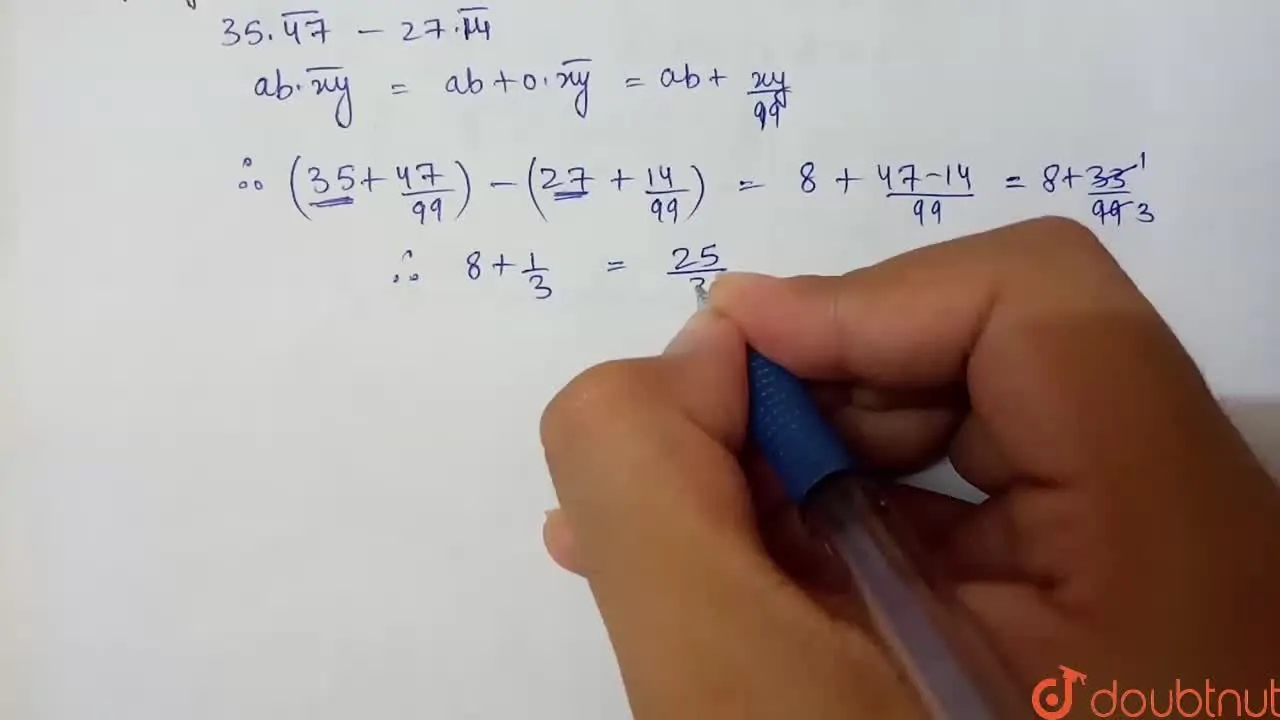 35.4̅7̅ - 27.1̅4̅
ab.x̅y̅ = ab + 0.x̅y̅ = ab + xy/99
∴ (35 + 47/99) - (27 + 14/99) = 8 + 47-14/99 = 8 + 33/99 1 3
∴ 8 + 1/3 = 25/3
doubtnut